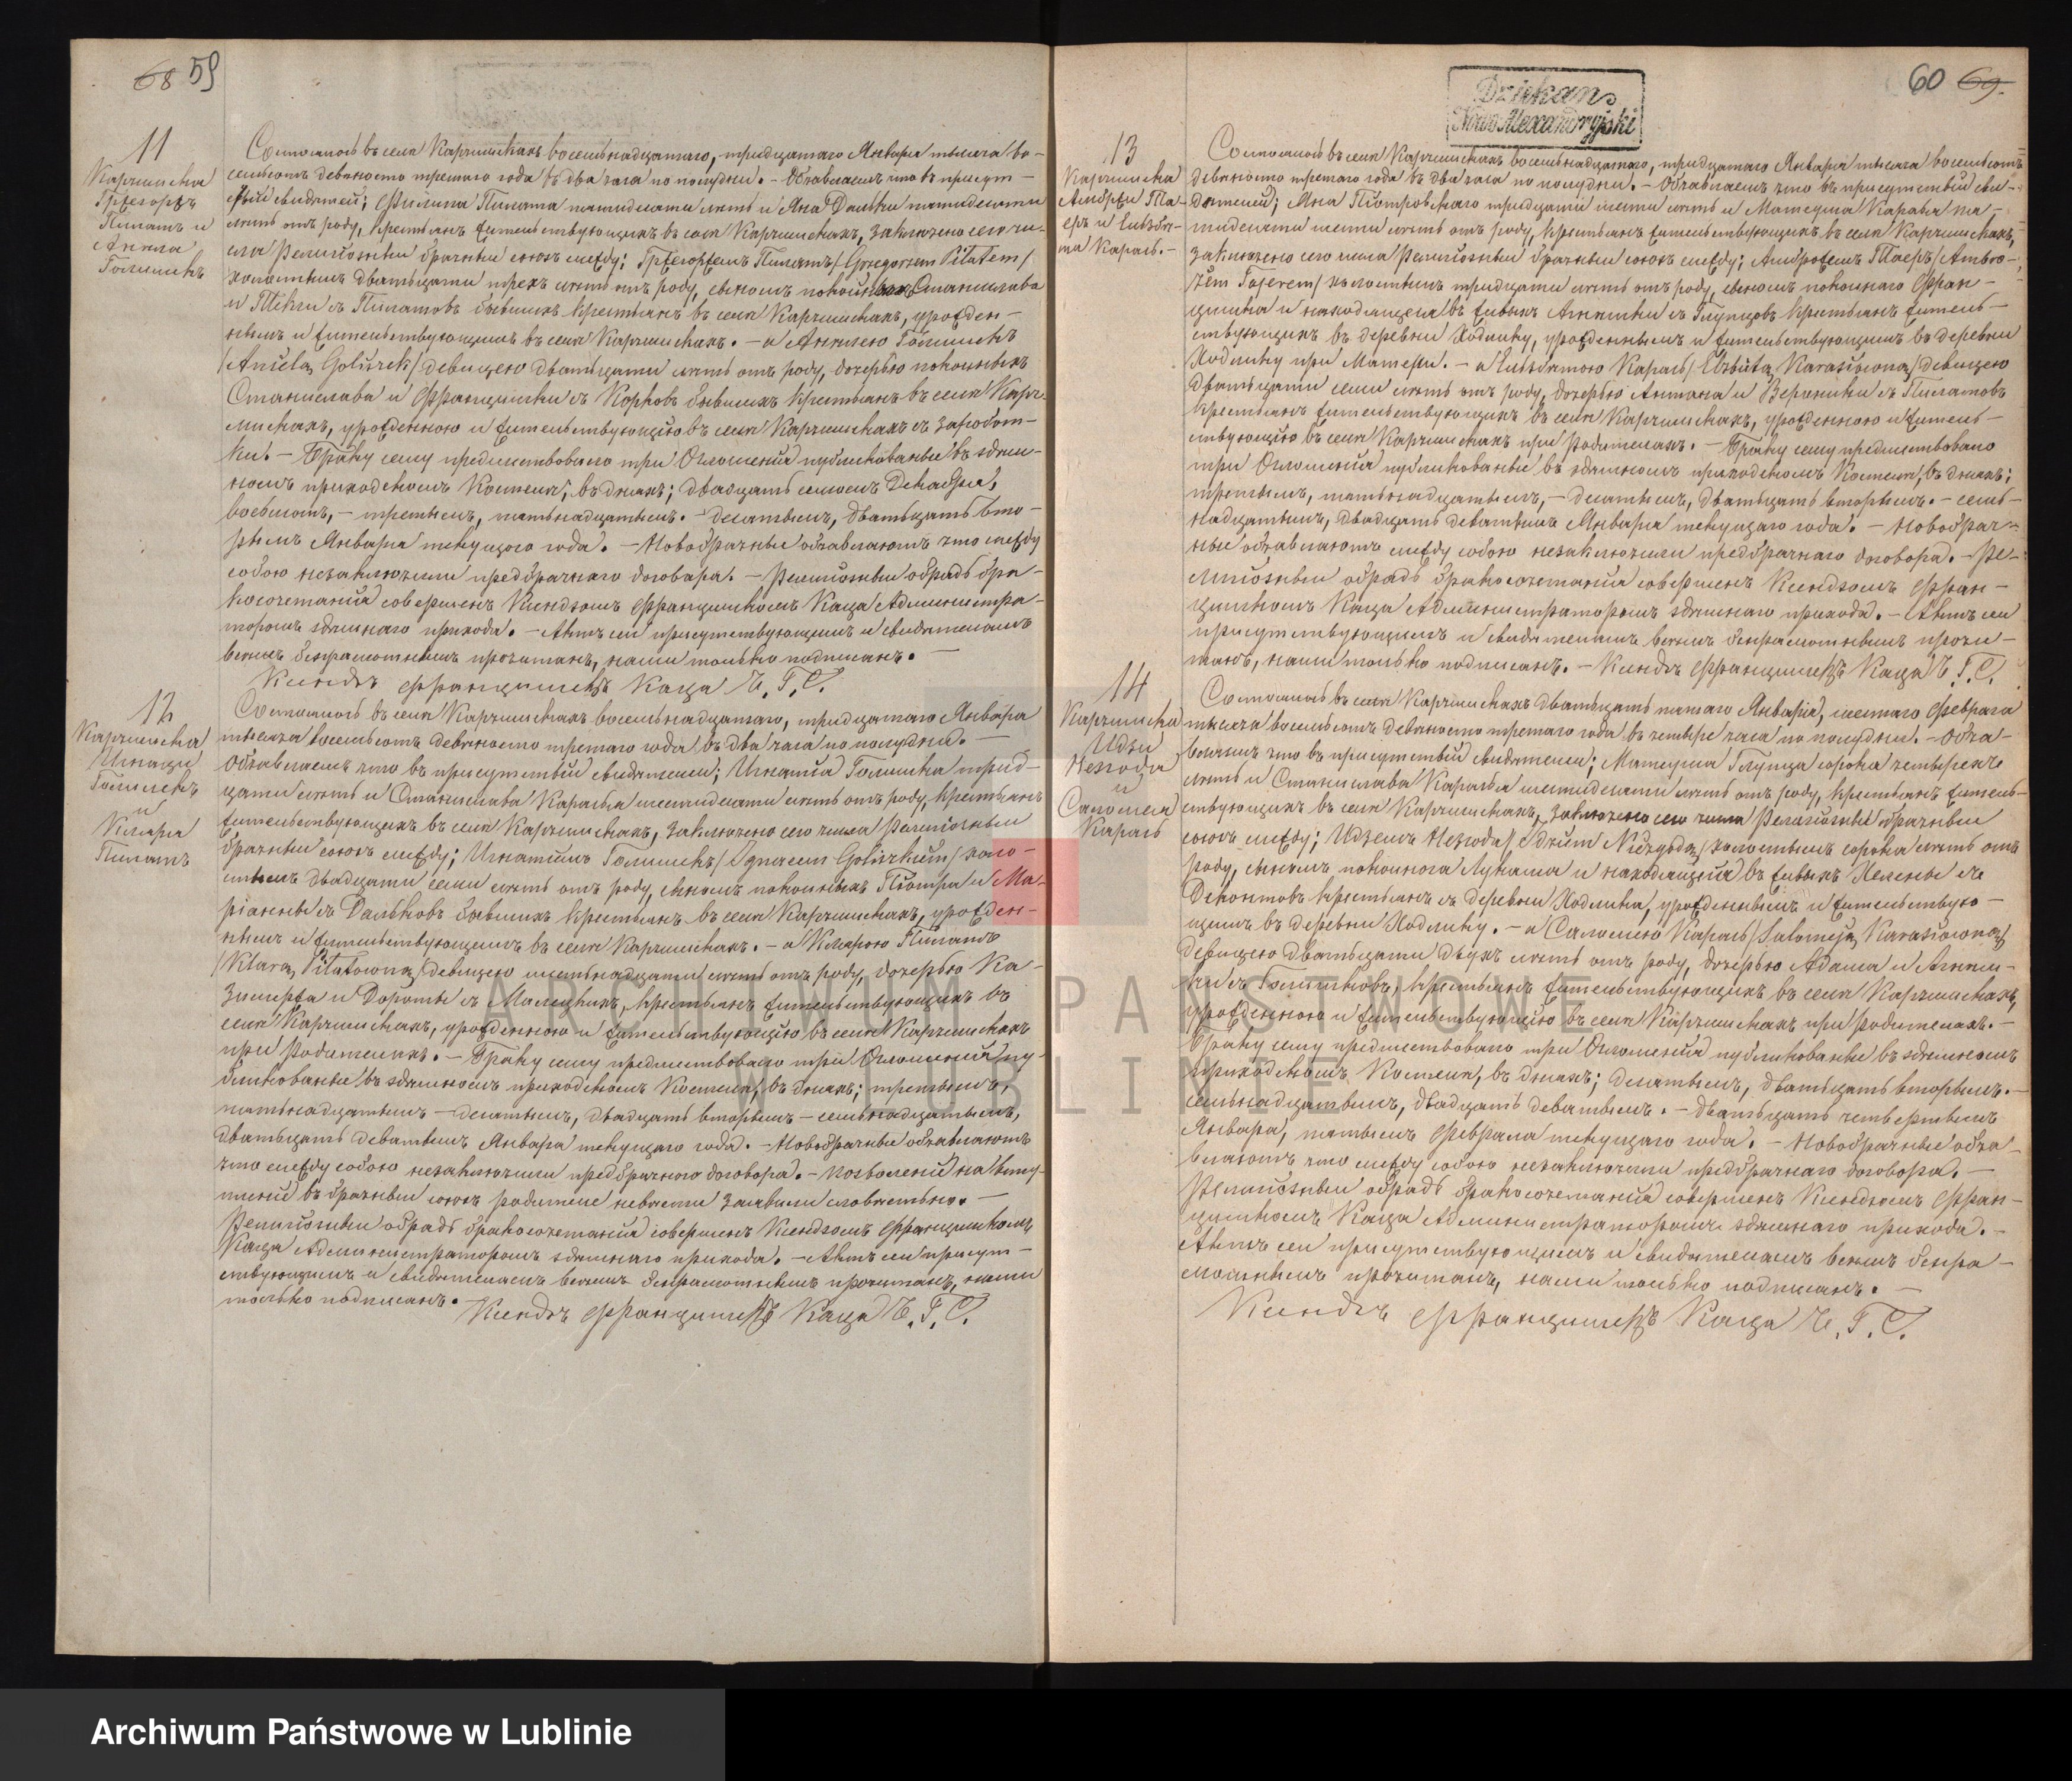 68 59
11
Карчмиска
Гржегоржъ
Пилатъ и
Анѣля
Голишекъ
Состоялось въ селѣ Карчмискахъ восемьнадцатаго, тридцатаго Января тысяча во-
семьсотъ девяносто третьяго года въ два часа по полудни. – Объявляемъ что въ присут-
ствіи свидѣтелей; Филипа Пилята пятидесяти лѣтъ и Яна Дальки пятидесяти
лѣтъ отъ роду, крестьянъ жительствующихъ въ селѣ Карчмискахъ, заключено сего чи-
сла Религіозный брачный союзъ между; Гржегоржемъ Пилятъ /Grzegorzem Pilatem/
холостымъ двадцати трехъ лѣтъ отъ роду, сыномъ покойныхъ Станислава
и Тёкли съ Пилятовъ бывшихъ крестьянъ въ селѣ Карчмискахъ, урожден-
нымъ и жительствующимъ въ селѣ Карчмискахъ. – и Анѣлею Голишекъ
/Anielą Goliszek/ девицею двадцати лѣтъ отъ роду, дочерью покойныхъ
Станислава и Францишки съ Корховъ бывшихъ крестьянъ въ селѣ Карч-
мискахъ, урожденною и жительствующею въ селѣ Карчмискахъ съ заробот-
ки. – Браку сему предшествовало три Оглашенія публикованные въ здѣш-
номъ приходскомъ Костелѣ, въ дняхъ; двадцать седьмомъ Декабря,
восьмомъ, – третьемъ, пятьнадцатымъ. – Десятымъ, двадцать вто-
рымъ Января текущаго года. – Новобрачные объявляютъ что между
собою незаключили предбрачнаго договора. – Религіозный обрядъ бра-
косочетанія совершенъ Ксендзомъ Францишкомъ Каца Администра-
торомъ здѣшняго прихода. – Актъ сей присутствующимъ и свидѣтелямъ
всѣмъ безграмотнымъ прочитанъ, нами только подписанъ. –
Ксендзъ Францишекъ Каца Ч. Г. С.
12
Карчмиска
Игнацы
Голишекъ
и
Кляра
Пилатъ
Состоялось въ селѣ Карчмискахъ восемьнадцатаго, тридцатаго Января
тысяча восемьсотъ девяносто третьяго года въ два часа по полудни. –
Объявляемъ что въ присутствіи свидѣтелей; Игнатія Голишка трид-
цати лѣтъ и Станислава Карася шестидесяти лѣтъ отъ роду, крестьянъ
жительствующихъ въ селѣ Карчмискахъ, заключено сего числа Религіозный
брачный союзъ между; Игнатымъ Голишекъ /Ignacem Goliszkiem/ холо-
стымъ двадцати семи лѣтъ отъ роду, сыномъ покойныхъ Піотра и Ма-
ріанны съ Дальковъ бывшихъ крестьянъ въ селѣ Карчмискахъ, урожден-
нымъ и жительствующимъ въ селѣ Карчмискахъ. – и Клярою Пилатъ
/Klarą Pilatowną/ девицею шестьнадцати лѣтъ отъ роду, дочерью Ка-
зимержа и Дороты съ Малецкихъ, крестьянъ жительствующихъ въ
селѣ Карчмискахъ, урожденною и жительствующею въ селѣ Карчмискахъ
при родителяхъ. – Браку сему предшествовало три Оглашенія пу-
бликованные въ здѣшномъ приходскомъ Костелѣ, въ дняхъ; третьемъ,
пятьнадцатымъ – десятымъ, двадцать вторымъ – семьнадцатымъ,
двадцать девятымъ Января текущаго года. – Новобрачные объявляютъ
что между собою незаключили предбрачного договора. – позволеніе на всту-
пленіе въ брачный союзъ родители невѣсты заявили словестно. –
Религіозный обрядъ бракосочетанія совершенъ Ксендзомъ Францишкомъ
Каца Администраторомъ здѣшняго прихода. – Актъ сей присут-
ствующимъ и свидѣтелямъ всѣмъ безграмотнымъ прочитанъ, нами
только подписанъ. Ксендзъ Францишекъ Каца Ч. Г. С.
60 69.
Dziekan
Nowo Alexandryjski
13
Карчмиска
Амброжи Та-
еръ и Ельжбѣ-
та Карась. –
Состоялось въ селѣ Карчмискахъ восемьнадцатаго, тридцатаго Января тысяча восемьсотъ
девяносто третьяго года въ два часа по полудни. – Объявляемъ что въ присутствіи сви-
дѣтелей; Яна Піотровскаго тридцати шести лѣтъ и Матеуша Карася пя-
тидесяти шести лѣтъ отъ роду, крестьянъ жительствующихъ въ селѣ Карчмискахъ,
заключено сего числа Религіозный брачный союзъ между; Амброжемъ Таеръ /Ambro-
żem Tajerem/ холостымъ тридцати лѣтъ отъ роду, сыномъ покойнаго Фран-
цишка и находящейся въ живыхъ Агнѣшки съ Глупцовъ крестьянъ житель-
ствующихъ въ деревни Ходлику, урожденнымъ и жительствующимъ въ деревни
Ходлику при Матери. – и Ельжбѣтою Карась /Elżbietą Karasiowną/ девицею
двадцати семи лѣтъ отъ роду, дочерью Антона и Вероники съ Пилятовъ
крестьянъ жительствующихъ въ селѣ Карчмискахъ, урожденною и житель-
ствующею въ селѣ Карчмискахъ при родителяхъ. – Браку сему предшествовало
три Оглашенія публикованные въ здѣшномъ приходскомъ Костелѣ, въ дняхъ;
третьемъ, пятьнадцатымъ, – десятымъ, двадцать вторымъ. – семь-
надцатымъ, двадцать девятымъ Января текущаго года. – Новобрач-
ные объявляютъ между собою незаключили предбрачнаго договора. – Ре-
лигіозный обрядъ бракосочетанія совершенъ Ксендзомъ Фран-
цишкомъ Каца Администраторомъ здѣшняго прихода. – Актъ сей
присутствующимъ и свидѣтелямъ всѣмъ безграмотнымъ прочи-
танъ, нами только подписанъ. – Ксендзъ Францишекъ Каца Ч. Г. С.
14
Карчмиска
Идзи
Незгода
и
Саломея
Карась
Состоялось въ селѣ Карчмискахъ двадцать пятаго Января, шестаго Февраля
тысяча восемьсотъ девяносто третьяго года въ четыре часа по полудни. – Объя-
вляемъ что въ присутствіи свидѣтелей; Матеуша Глупца сорока четырехъ
лѣтъ и Станислава Карася шестидесяти лѣтъ отъ роду, крестьянъ житель-
ствующихъ въ селѣ Карчмискахъ, заключено сего числа Религіозный брачный
союзъ между; Идземъ Незгода /Idzim Niezgodą/ холостымъ сорока лѣтъ отъ
роду, сыномъ покойнога Лукаша и находящейся въ живыхъ Хелены съ
Деконтовъ крестьянъ съ деревни Ходлика, урожденнымъ и жительствую-
щимъ въ деревни Ходлику. – и Саломею Карась /Salomeją Karasiowną/
девицею двадцати двухъ лѣтъ отъ роду, дочерью Адама и Агнѣш-
ки съ Голишковъ, крестьянъ жительствующихъ въ селѣ Карчмискахъ,
урожденною и жительствующею въ селѣ Карчмискахъ при родителахъ. –
Браку сему предшествовало три Оглашенія публикованные въ здѣшномъ
приходскомъ Костелѣ, въ дняхъ; десятымъ, двадцать вторымъ. –
семьнадцатымъ, двадцать девятымъ. – двадцать четвертымъ
Января, пятымъ Февраля текущаго года. – Новобрачные объя-
вляютъ что между собою незаключили предбрачнаго договора. –
Религіозный обрядъ бракосочетанія совершенъ Ксендзомъ Фран-
цишкомъ Каца Администраторомъ здѣшняго прихода. –
Актъ сей присутствующимъ и свидѣтелямъ всѣмъ безгра-
мотнымъ прочитанъ, нами только подписанъ. –
Ксендзъ Францишекъ Каца Ч. Г. С.
ARCHIWUM PAŃSTWOWE
W LUBLINIE
Archiwum Państwowe w Lublinie